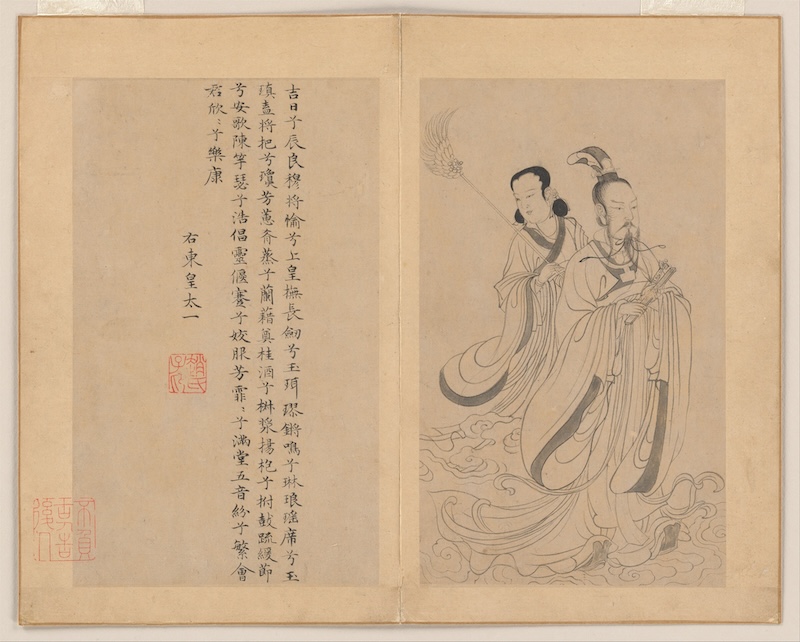 吉日兮辰良穆將愉兮上皇撫長劒兮玉珥璆鏘鳴兮琳琅瑤席兮玉
瑱盍將把兮瓊芳蕙肴蒸兮蘭藉奠桂酒兮椒漿揚枹兮拊鼓疏緩節
兮安歌陳竽瑟兮浩倡靈偃蹇兮姣服芳霏〻兮滿堂五音紛兮繁會
君欣〻兮樂康
右東皇太一
趙氏子昂